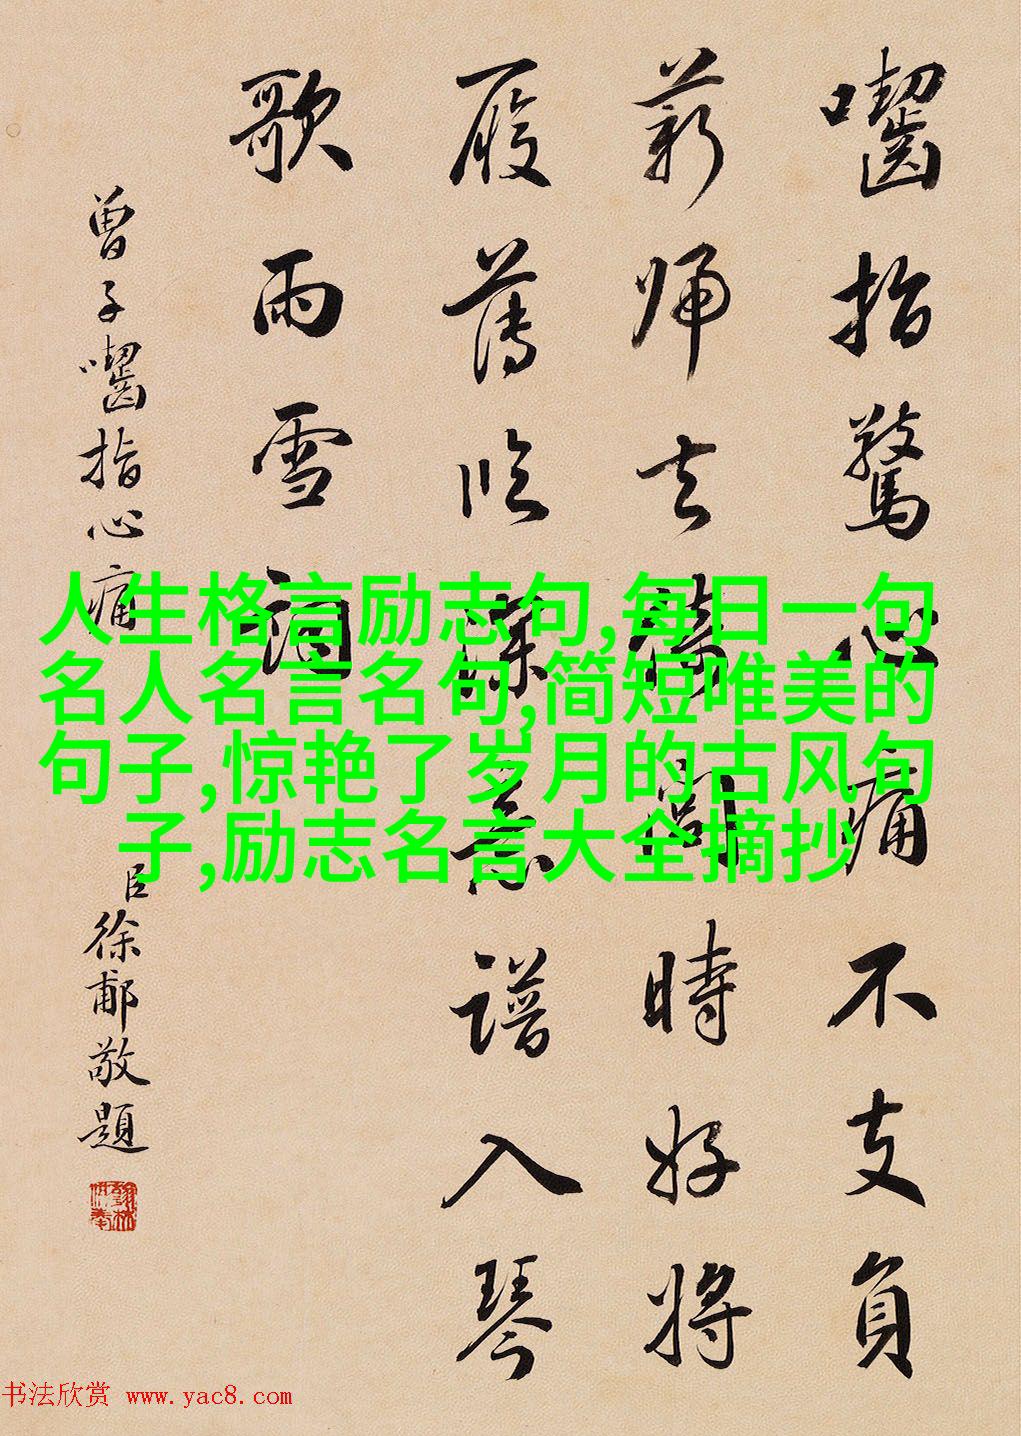 囓指驚心痛不支負
薪歸去倚閭時好將
履薄臨深意譜入琴
歌雨雪詞
曾子囓指心痛
臣徐郙敬題
人生格言励志句,每日一句
名人名言名句,简短唯美的
句子,惊艳了岁月的古风句
子,励志名言大全摘抄
书法欣赏 www.yac8.com